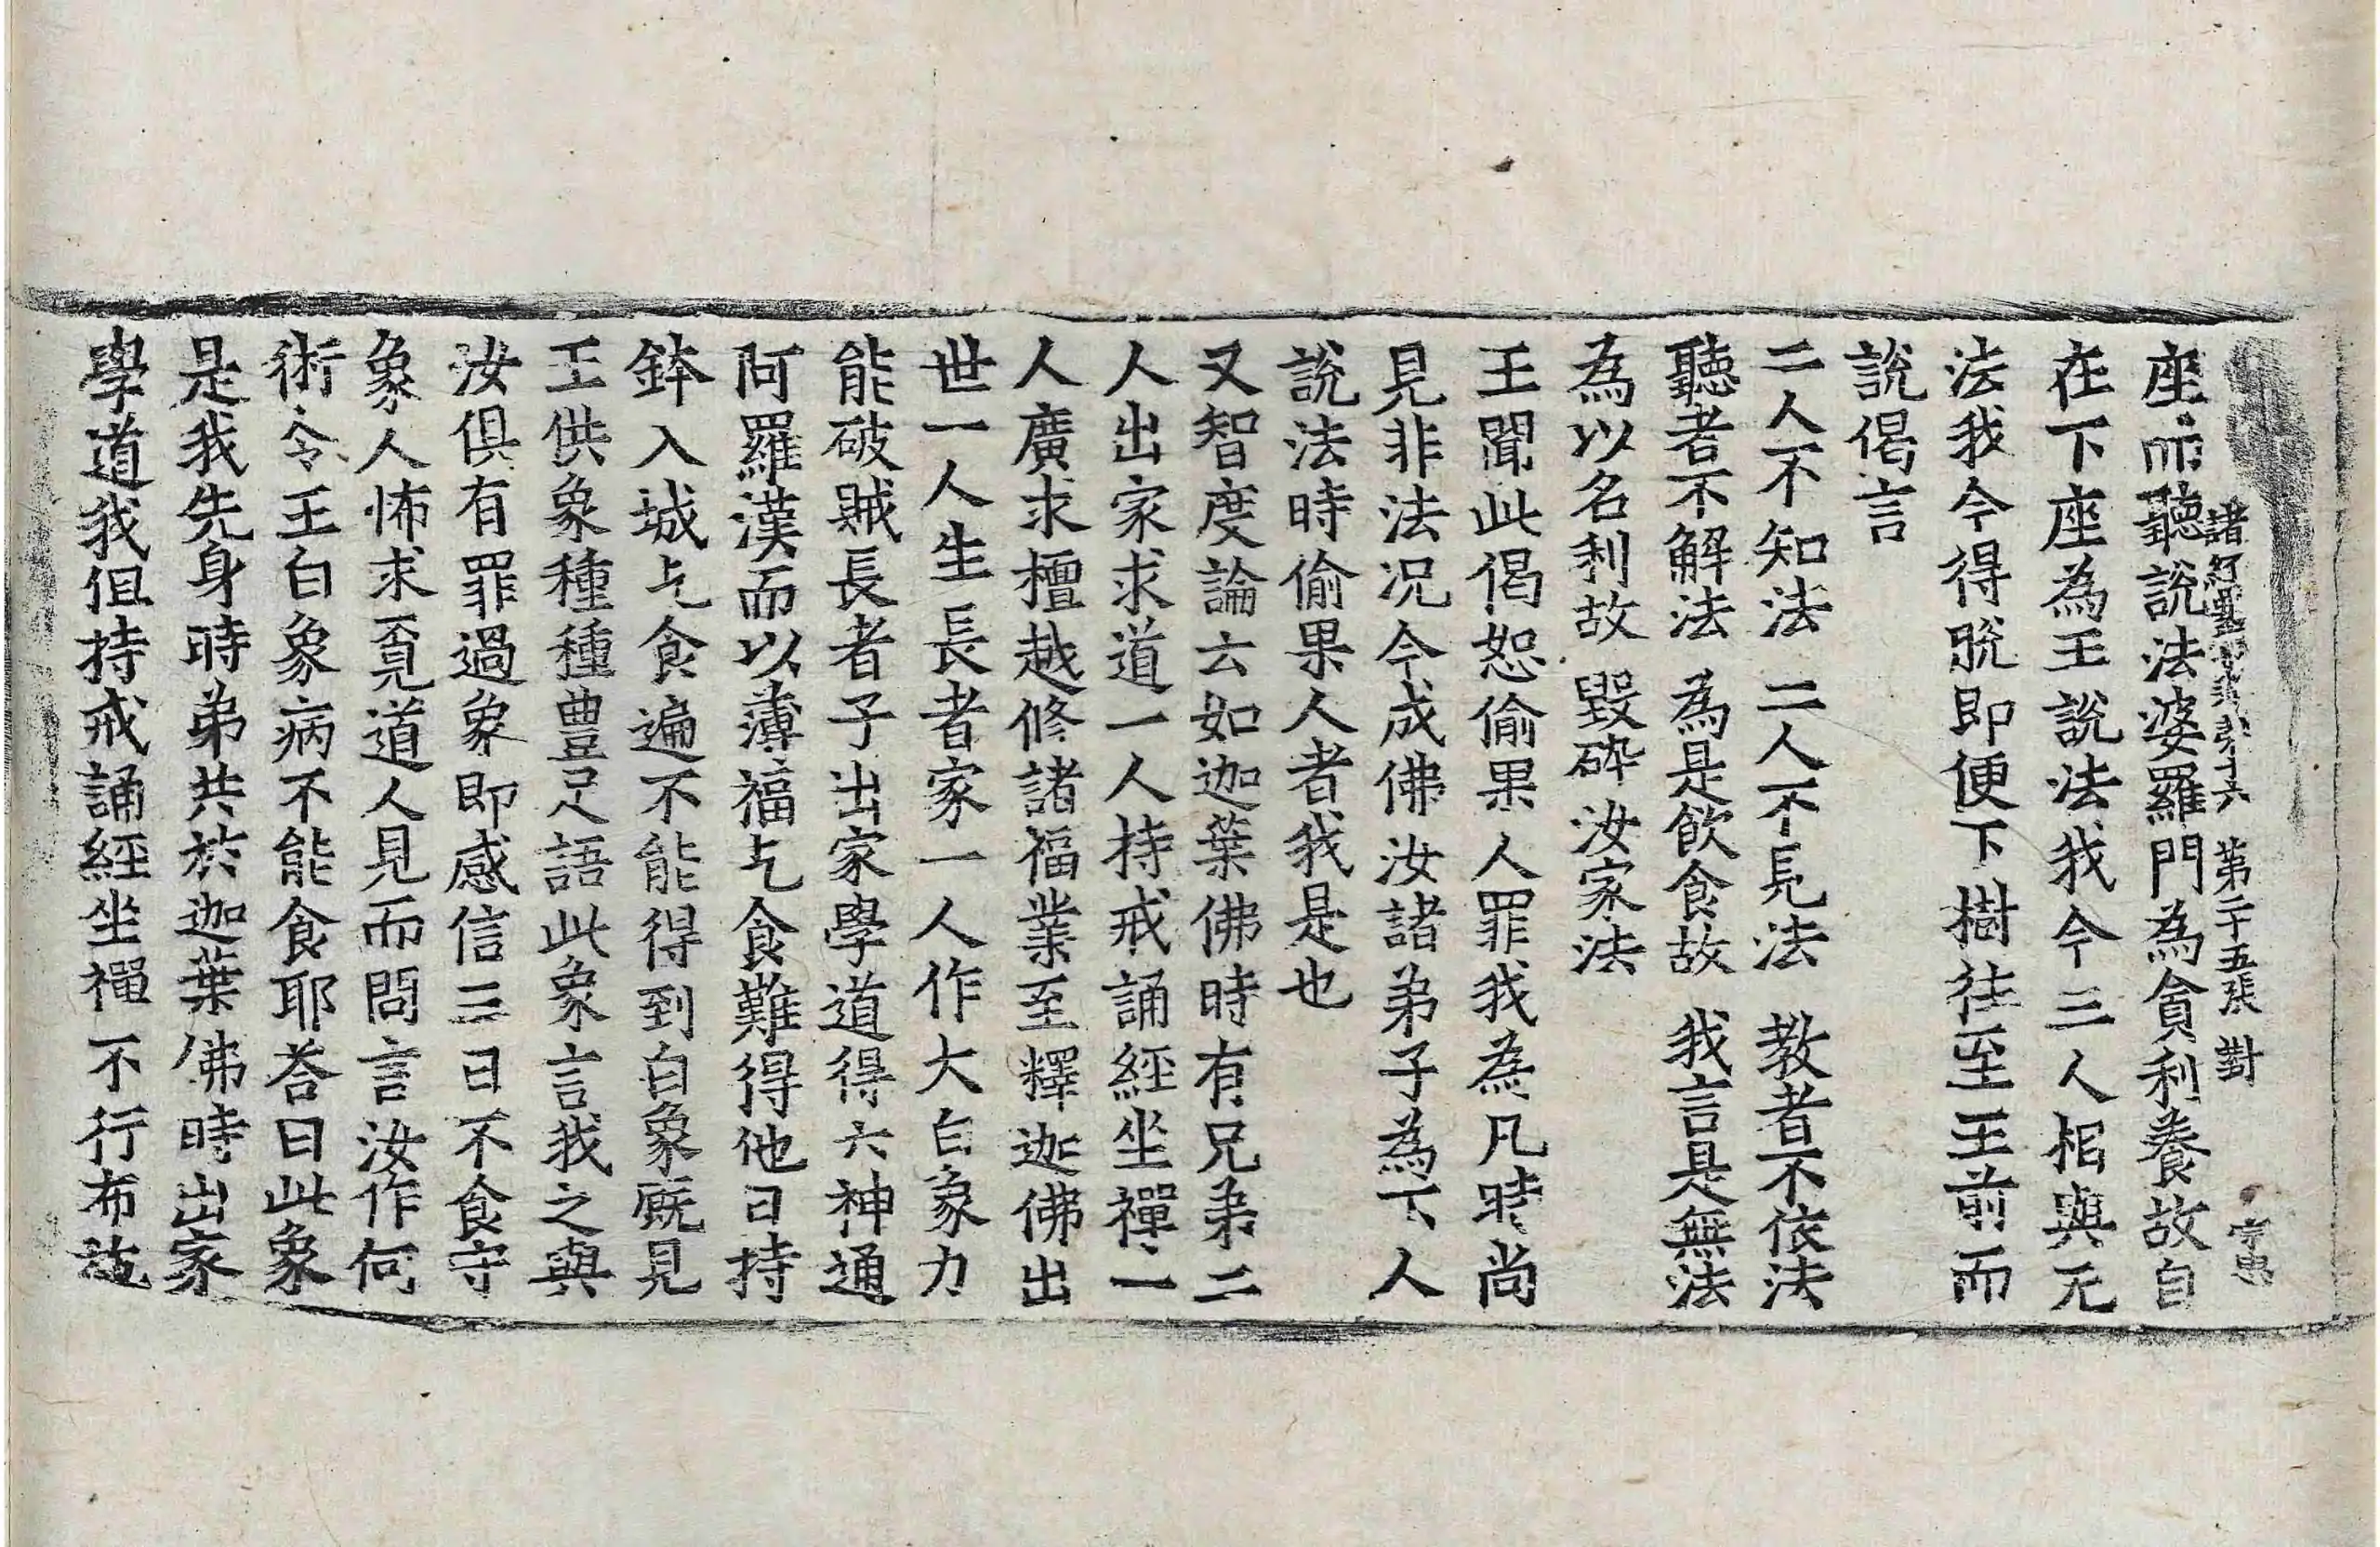 諸經要集卷第十六 第二十五張 對
座而聽說法婆羅門為貪利養故自
在下座為王說法我今三人相與无
法我今得脫即便下樹往至王前而
說偈言
二人不知法 二人不見法 教者不依法
聽者不解法 為是飲食故 我言是無法
為以名利故 毀碎汝家法
王聞此偈恕偷果人罪我為凡時尚
見非法況今成佛汝諸弟子為下人
說法時偷果人者我是也
又智度論云如迦葉佛時有兄弟二
人出家求道一人持戒誦經坐禪一
人廣求檀越修諸福業至釋迦佛出
世一人生長者家一人作大白象力
能破賊長者子出家學道得六神通
阿羅漢而以薄福乞食難得他日持
鉢入城乞食遍不能得到白象廐見
王供象種種豊足語此象言我之與
汝俱有罪過象即感信三日不食守
象人怖求覔道人見而問言汝作何
術令王白象病不能食耶荅曰此象
是我先身時弟共於迦葉佛時出家
學道我但持戒誦經坐禪不行布施